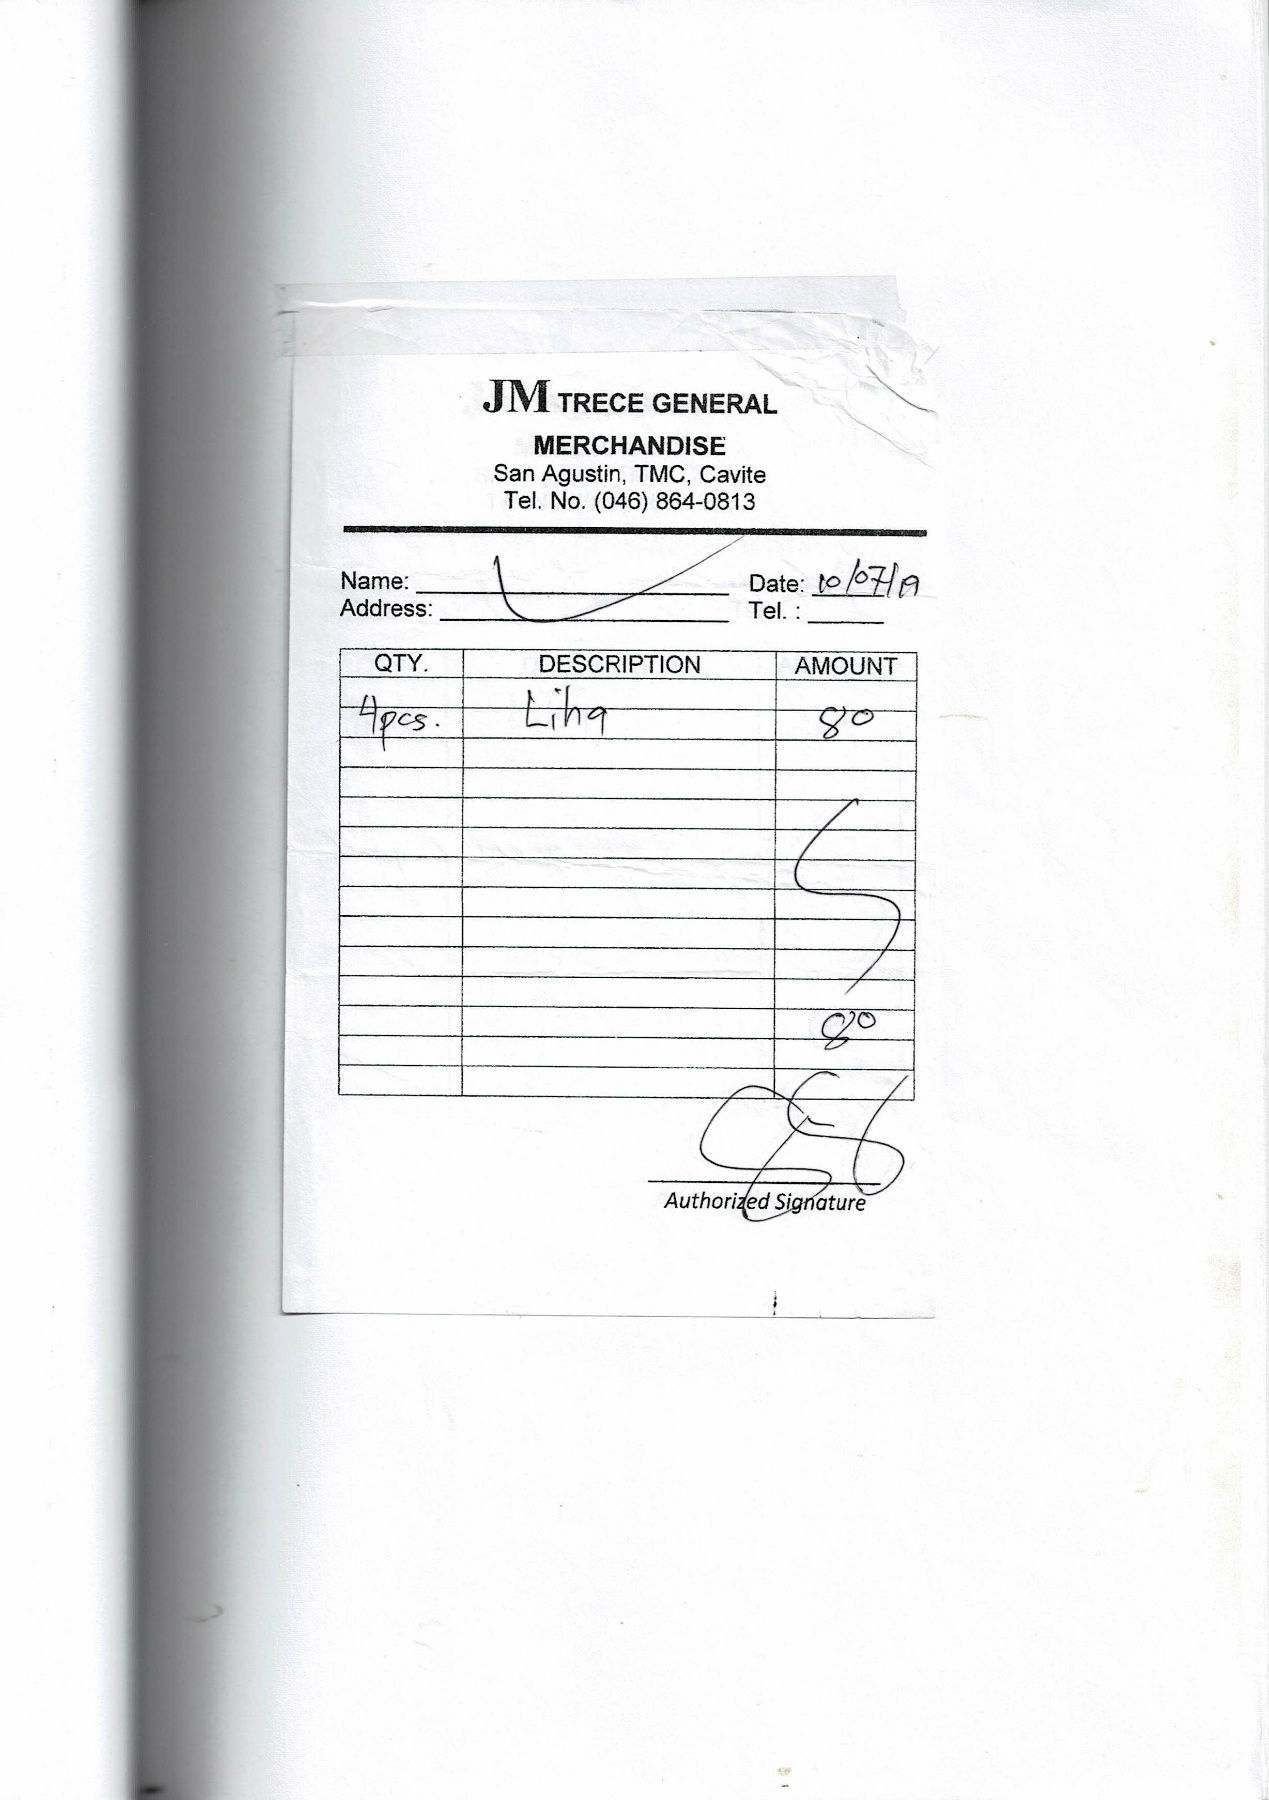 JM TRECE GENERAL
MERCHANDISE
San Agustin, TMC, Cavite
Tel. No. (046) 864-0813
Name: Date: 10/07/19
Address: Tel. :
QTY. DESCRIPTION AMOUNT
4pcs. Liha 80
80
Authorized Signature